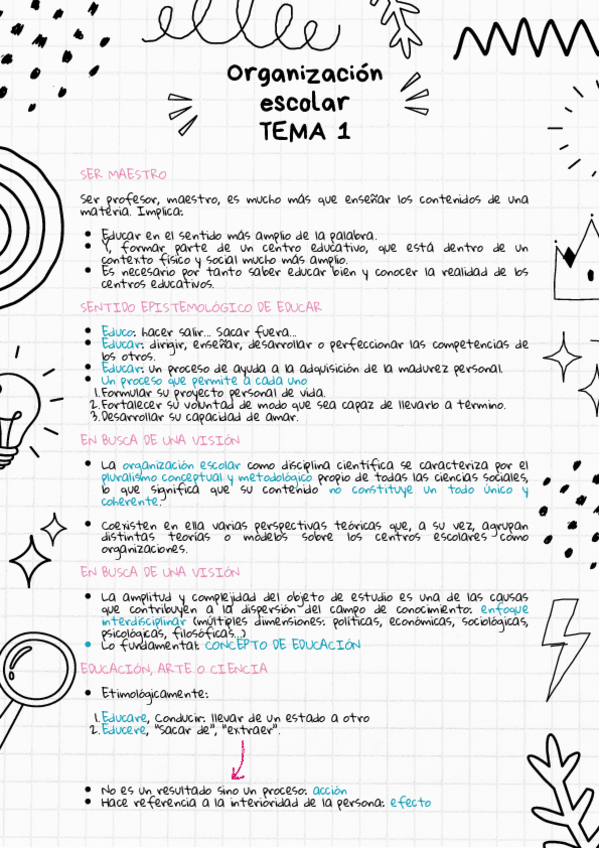 Organización
escolar
TEMA 1
SER MAESTRO
Ser profesor, maestro, es mucho más que enseñar los contenidos de una
materia. Implica:
Educar en el sentido más amplio de la palabra.
Y, formar parte de un centro educativo, que está dentro de un
contexto físico y social mucho más amplio.
Es necesario por tanto saber educar bien y conocer la realidad de los
centros educativos.
SENTIDO EPISTEMOLÓGICO DE EDUCAR
Educo: hacer salir... Sacar fuera...
Educar: dirigir, enseñar, desarrollar o perfeccionar las competencias de
los otros.
Educar: un proceso de ayuda a la adquisición de la madurez personal.
Un proceso que permite a cada uno
1. Formular su proyecto personal de vida.
2. Fortalecer su voluntad de modo que sea capaz de llevarlo a término.
3. Desarrollar su capacidad de amar.
EN BUSCA DE UNA VISIÓN
La organización escolar como disciplina científica se caracteriza por el
pluralismo conceptual y metodológico propio de todas las ciencias sociales,
lo que significa que su contenido no constituye un todo único y
coherente.
Coexisten en ella varias perspectivas teóricas que, a su vez, agrupan
distintas teorías o modelos sobre los centros escolares como
organizaciones.
EN BUSCA DE UNA VISIÓN
La amplitud y complejidad del objeto de estudio es una de las causas
que contribuyen a la dispersión del campo de conocimiento: enfoque
interdisciplinar (múltiples dimensiones: políticas, económicas, sociológicas,
psicológicas, filosóficas...)
Lo fundamental: CONCEPTO DE EDUCACIÓN
EDUCACIÓN, ARTE O CIENCIA
Etimológicamente:
1. Educare, Conducir: llevar de un estado a otro
2. Educere, "Sacar de", "extraer".
No es un resultado sino un proceso: acción
Hace referencia a la interioridad de la persona: efecto